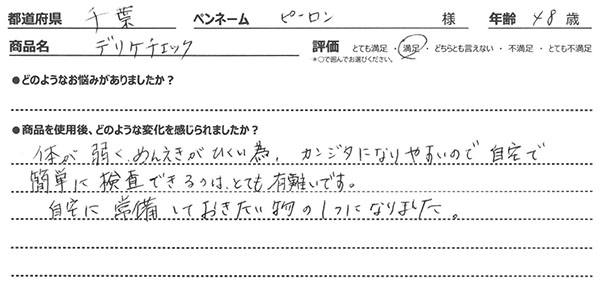 都道府県 千葉 ペンネーム ピーロン 様 年齢 48 歳
商品名 デリケチェック 評価 とても満足 ・ 満足 ・ どちらとも言えない ・ 不満足 ・ とても不満足
*○で囲んでお選びください。
●どのようなお悩みがありましたか？
●商品を使用後、どのような変化を感じられましたか？
体が弱く、めんえきがひくい為、カンジタになりやすいので自宅で
簡単に検査できるのは、とても有難いです。
自宅に常備しておきたい物の1つになりました。